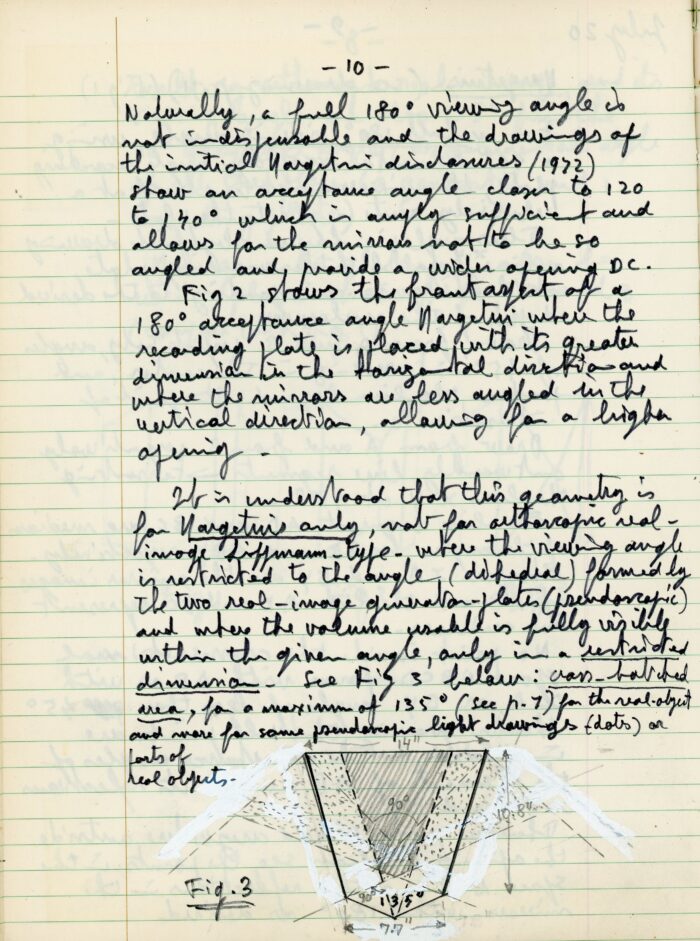 - 10 -
Naturally, a full 180° viewing angle is
not indispensable and the drawings of
the initial Margetui disclosures (1972)
show an acceptance angle closer to 120
to 140° which is amply sufficient and
allows for the mirrors not to be so
angled and provide a wider opening DC.
Fig 2 shows the front aspect of a
180° acceptance angle Margetui where the
recording plate is placed with its greater
dimension in the Horizontal direction and
where the mirrors are less angled in the
vertical direction, allowing for a higher
opening.
It is understood that this geometry is
for Margetuis only, not for orthoscopic real-
image Lippmann-type - where the viewing angle
is restricted to the angle (dihedral) formed by
the two real-image generator-plates (pseudoscopic)
and where the volume usable is fully visible
within the given angle, only in a restricted
dimension - See Fig 3 below: cross-hatched
area, for a maximum of 135° (see p. 7) for the real-object
and more for some pseudoscopic light drawings (dots) or
parts of
real objects.
14"
90°
10.8"
Fig. 3
90°
135°
7.7"